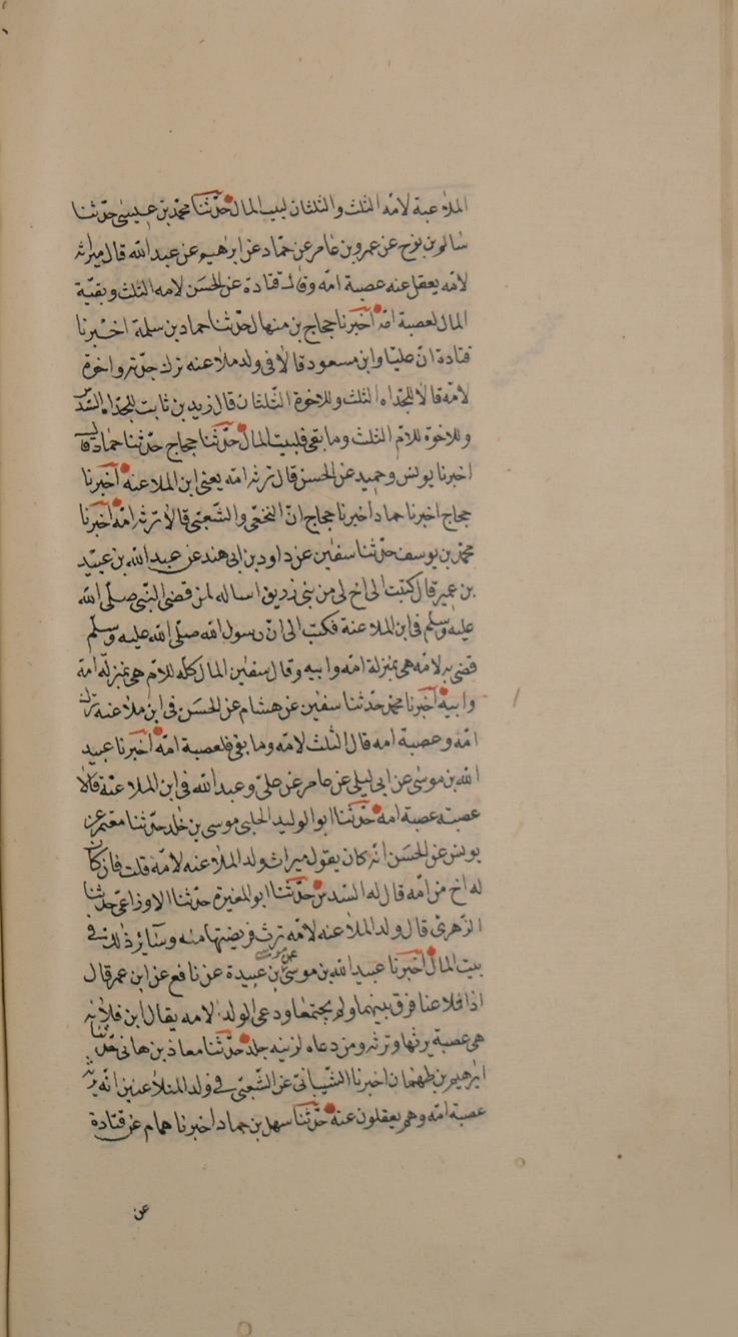 الملاعبة لامه الثلث والثلثان لبيت المال حدثنا محمد بن عيسى حدثنا
سالم بن نوح عن عمرو بن عامر عن حماد عن ابرهيم عن عبد الله قال ميراثه
لامه يعقل عنه عصبة امه وقال قتادة عن الحسن لامه الثلث وبقية
المال لعصبة امه اخبرنا حجاج بن منهال حدثنا حماد بن سلمة اخبرنا
قتادة ان عليا وابن مسعود قالا في ولد ملاعنه ترك جدته واخوة
لامه قالا للجداه الثلث وللاخوة الثلثان قال زيد بن ثابت للجداه السدس
وللاخوة للام الثلث وما بقي فلبيت المال حدثنا حجاج حدثنا حماد قال
اخبرنا يونس وحميد عن الحسن قال ترثه امه يعنى ابن الملاعنه اخبرنا
حجاج اخبرنا حماد اخبرنا حجاج ان النخعي والشعبي قالا ترثه امه اخبرنا
محمد بن يوسف حدثنا سفين عن داود بن ابي هند عن عبد الله بن عبيد
بن عمير قال كتبت الى اخ لى من بنى زريق اساله لمن قضى النبي صلى الله
عليه وسلم في ابن الملاعنة فكتب الى ان رسول الله صلى الله عليه وسلم
قضى به لامه هي بمنزلة امه وابيه وقال سفين المال كله للام هي بمنزلة امه
وابيه اخبرنا محمد حدثنا سفين عن هشام عن الحسن في ابن ملاعنه ترك
امه وعصبة امه قال الثلث لامه وما بقي فلعصبة امه اخبرنا عبيد
الله بن موسى عن ابي ليلى عن عامر عن علي وعبد الله في ابن الملاعنة قالا
عصبته عصبة امه حدثنا ابو الوليد الحلبي موسى بن خلد حدثنا معتمر عن
يونس عن الحسن انه كان يقول ميراث ولد الملاعنه لامه قلت فان كان
له اخ من امه قال له السدس حدثنا ابو المغيرة حدثنا الاوزاعي حدثنا
الزهري قال ولد الملاعنه لامه ترث فريضتها منه وسائر ذلك في
بيت المال اخبرنا عبيد الله بن موسى عن موسى بن عبيدة عن نافع عن ابن عمر قال
اذا تلاعنا فرق بينهما ولم يجتمعا ودعى الولد لامه يقال ابن فلانه
هي عصبة يرثها وترثه ومن دعاه لزنيه جلد حدثنا معاذ بن هانى حدثنا
ابرهيم بن طهمان اخبرنا الشيباني عن الشعبي في ولد المتلاعنين انه يرثه
عصبة امه وهم يعقلون عنه حدثنا سهل بن حماد اخبرنا همام عن قتادة
عن